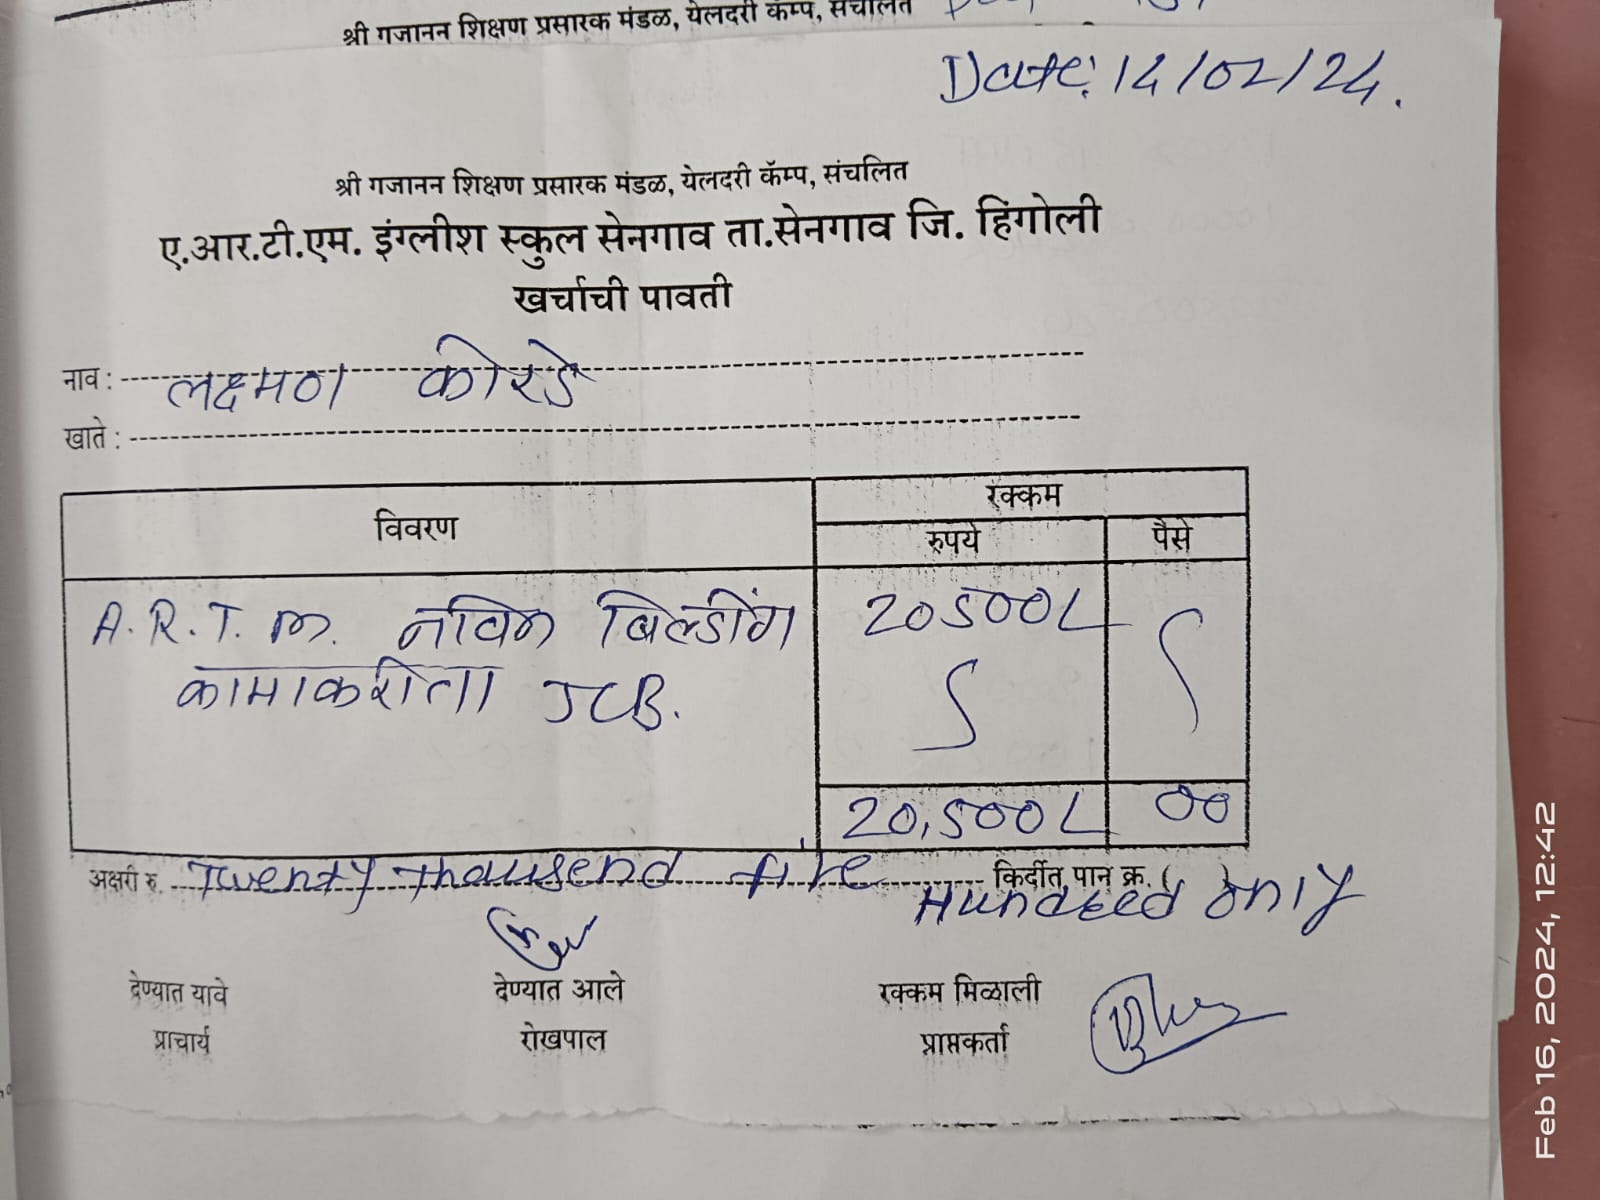 श्री गजानन शिक्षण प्रसारक मंडळ, येलदरी कॅम्प, संचलित
Date: 14/02/24.
श्री गजानन शिक्षण प्रसारक मंडळ, येलदरी कॅम्प, संचलित
ए.आर.टी.एम. इंग्लीश स्कुल सेनगाव ता.सेनगाव जि. हिंगोली
खर्चाची पावती
नाव : लक्ष्मण कोरडे
खाते :
विवरण रक्कम
रुपये पैसे
A.R.T.M. नविन बिल्डींग 20500/-
कामाकरीता JCB.
20,500/- 00
अक्षरी रु. Twenty Thausend five Hundeed only किर्दीत पान क्र. ( )
देण्यात यावे देण्यात आले रक्कम मिळाली
प्राचार्य रोखपाल प्राप्तकर्ता
Feb 16, 2024, 12:42